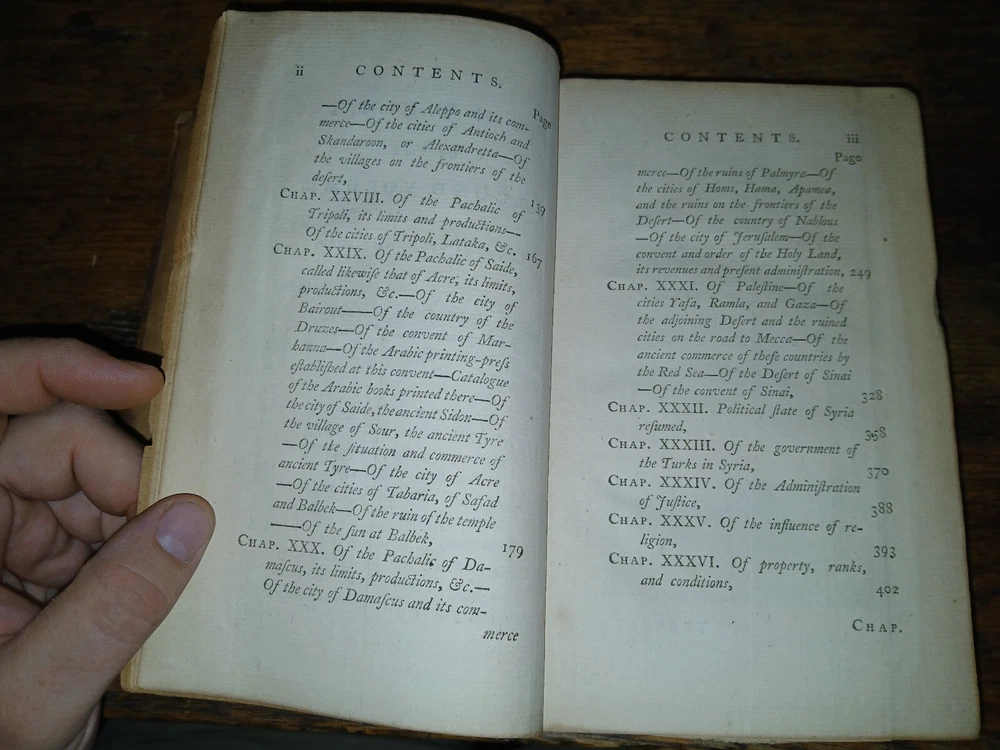 ii CONTENTS.
Page
—Of the city of Aleppo and its com-
merce—Of the cities of Antioch and
Skandaroon, or Alexandretta—Of
the villages on the frontiers of the
deſert, 139
CHAP. XXVIII. Of the Pachalic of
Tripoli, its limits and productions—
Of the cities of Tripoli, Lataka, &c. 167
CHAP. XXIX. Of the Pachalic of Saide,
called likewiſe that of Acre, its limits,
productions, &c.—Of the city of
Bairout——Of the country of the
Druzes—Of the convent of Mar-
hanna—Of the Arabic printing-preſs
eſtabliſhed at this convent—Catalogue
of the Arabic books printed there—Of
the city of Saide, the ancient Sidon—Of
the village of Sour, the ancient Tyre
—Of the ſituation and commerce of
ancient Tyre—Of the city of Acre
—Of the cities of Tabaria, of Safad
and Balbek—Of the ruin of the temple
——Of the ſun at Balbek, 179
CHAP. XXX. Of the Pachalic of Da-
maſcus, its limits, productions, &c.—
Of the city of Damaſcus and its com-
merce
CONTENTS. iii
Page
merce—Of the ruins of Palmyra—Of
the cities of Homs, Hama, Apamea,
and the ruins on the frontiers of the
Deſert—Of the country of Nablous
—Of the city of Jeruſalem—Of the
convent and order of the Holy Land,
its revenues and preſent adminiſtration, 249
CHAP. XXXI. Of Paleſtine—Of the
cities Yafa, Ramla, and Gaza—Of
the adjoining Deſert and the ruined
cities on the road to Mecca—Of the
ancient commerce of theſe countries by
the Red Sea—Of the Deſert of Sinai
—Of the convent of Sinai, 328
CHAP. XXXII. Political ſtate of Syria
reſumed, 358
CHAP. XXXIII. Of the government of
the Turks in Syria, 370
CHAP. XXXIV. Of the Adminiſtration
of Juſtice, 388
CHAP. XXXV. Of the influence of re-
ligion, 393
CHAP. XXXVI. Of property, ranks,
and conditions, 402
CHAP.